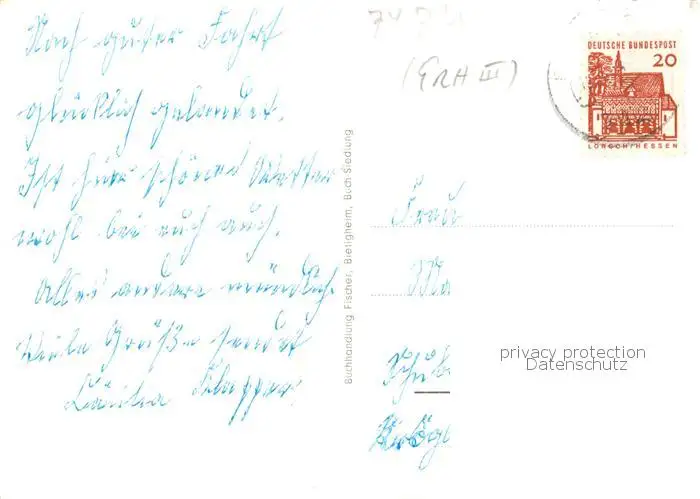 Nach guter Fahrt
glücklich gelandet.
Ist hier schönes Wetter
wohl bei euch auch.
Alles andere mündlich.
Viele Grüße sendet
Buchhandlung Fischer, Bietigheim, Buch Siedlung
(GRA III)
DEUTSCHE BUNDESPOST
20
LORSCH/HESSEN
Frau
Ma
privacy protection
Datenschutz